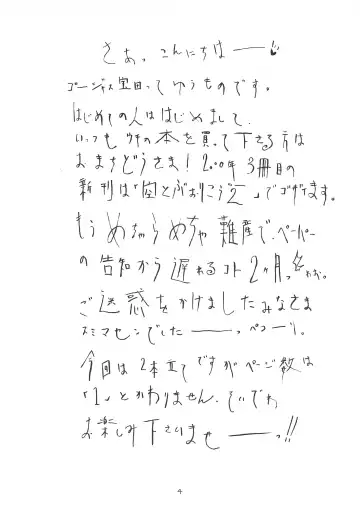 さぁっこんにちはーー
ゴージャス宝田ってゆうものです。
はじめての人ははじめまして、
いっつもウチの本を買って下さる方は
おまちどうさま!2000年3冊目の
新刊は「空とぶおりこう2」でゴザます。
もうめちゃらめちゃ難産で、ペーパー
の告知から遅れるコト2ヶ月っ
ご迷惑をかけましたみなさま
スミマセンでしたーーっペコーリ。
今回は2本立てですがページ数は
「1」とかわりません、ていでわ
お楽しみ下さりませーーっ!!
4